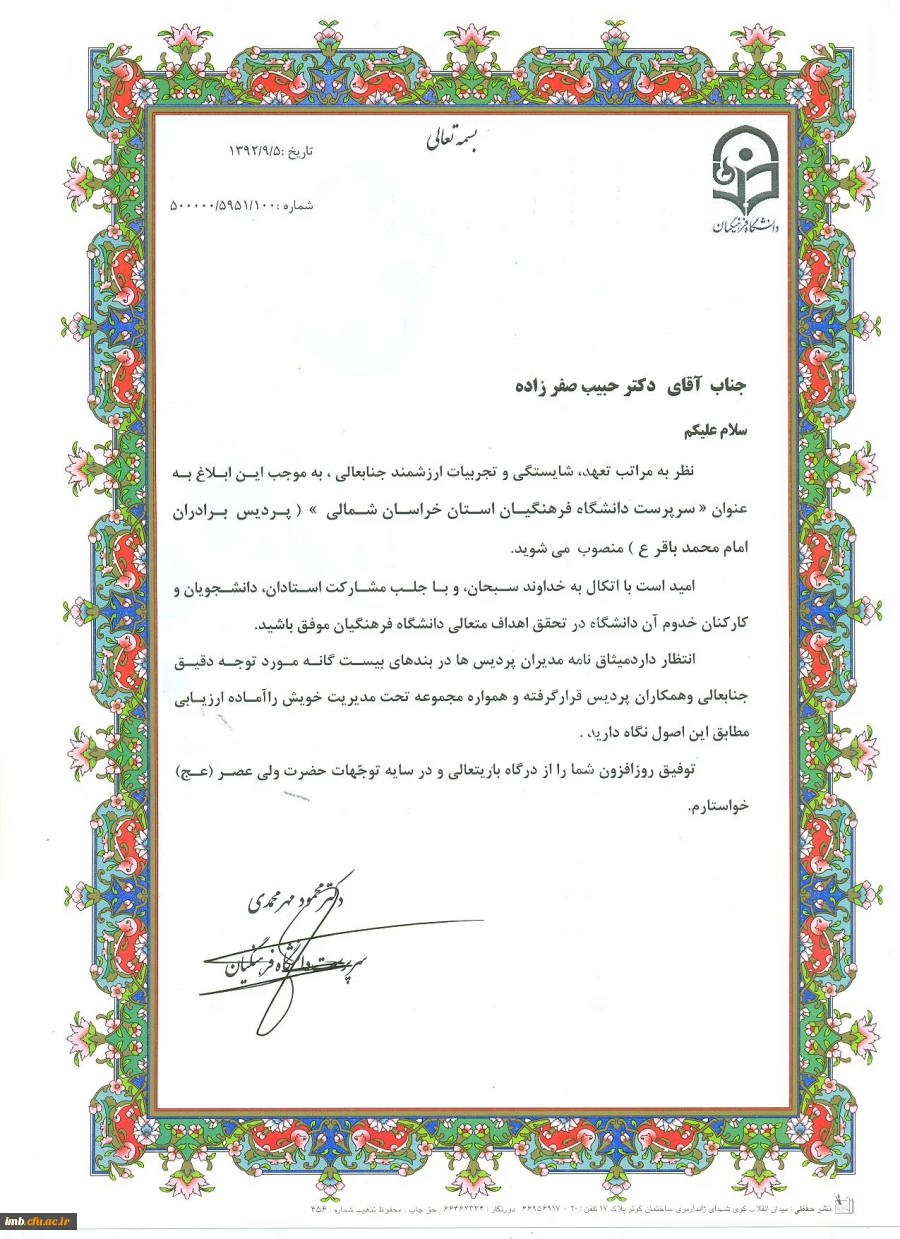 بسمه تعالی
دانشگاه فرهنگیان
تاریخ :۱۳۹۲/۹/۵
شماره :۵۰۰۰۰۰/۵۹۵۱/۱۰۰
جناب آقای دکتر حبیب صفر زاده
سلام علیکم
نظر به مراتب تعهد، شایستگی و تجربیات ارزشمند جنابعالی ، به موجب این ابلاغ به
عنوان « سرپرست دانشگاه فرهنگیان استان خراسان شمالی » ( پردیس برادران
امام محمد باقر ع ) منصوب می شوید.
امید است با اتکال به خداوند سبحان، و با جلب مشارکت استادان، دانشجویان و
کارکنان خدوم آن دانشگاه در تحقق اهداف متعالی دانشگاه فرهنگیان موفق باشید.
انتظار داردمیثاق نامه مدیران پردیس ها در بندهای بیست گانه مورد توجه دقیق
جنابعالی وهمکاران پردیس قرارگرفته و همواره مجموعه تحت مدیریت خویش راآماده ارزیابی
مطابق این اصول نگاه دارید .
توفیق روزافزون شما را از درگاه باریتعالی و در سایه توجّهات حضرت ولی عصر (عج)
خواستارم.
دکتر محمود مهرمحمدی
سرپرست دانشگاه فرهنگیان
نشر حفظی : میدان انقلاب کوی شهدای ژاندارمری ساختمان کوثر پلاک ۱۷ تلفن : ۲۰ - ۶۶۹۵۶۹۱۷ دورنگار : ۶۶۴۶۲۳۳۴ حق چاپ ، محفوظ تذهیب شماره : ۴۵۶
imb.cfu.ac.ir